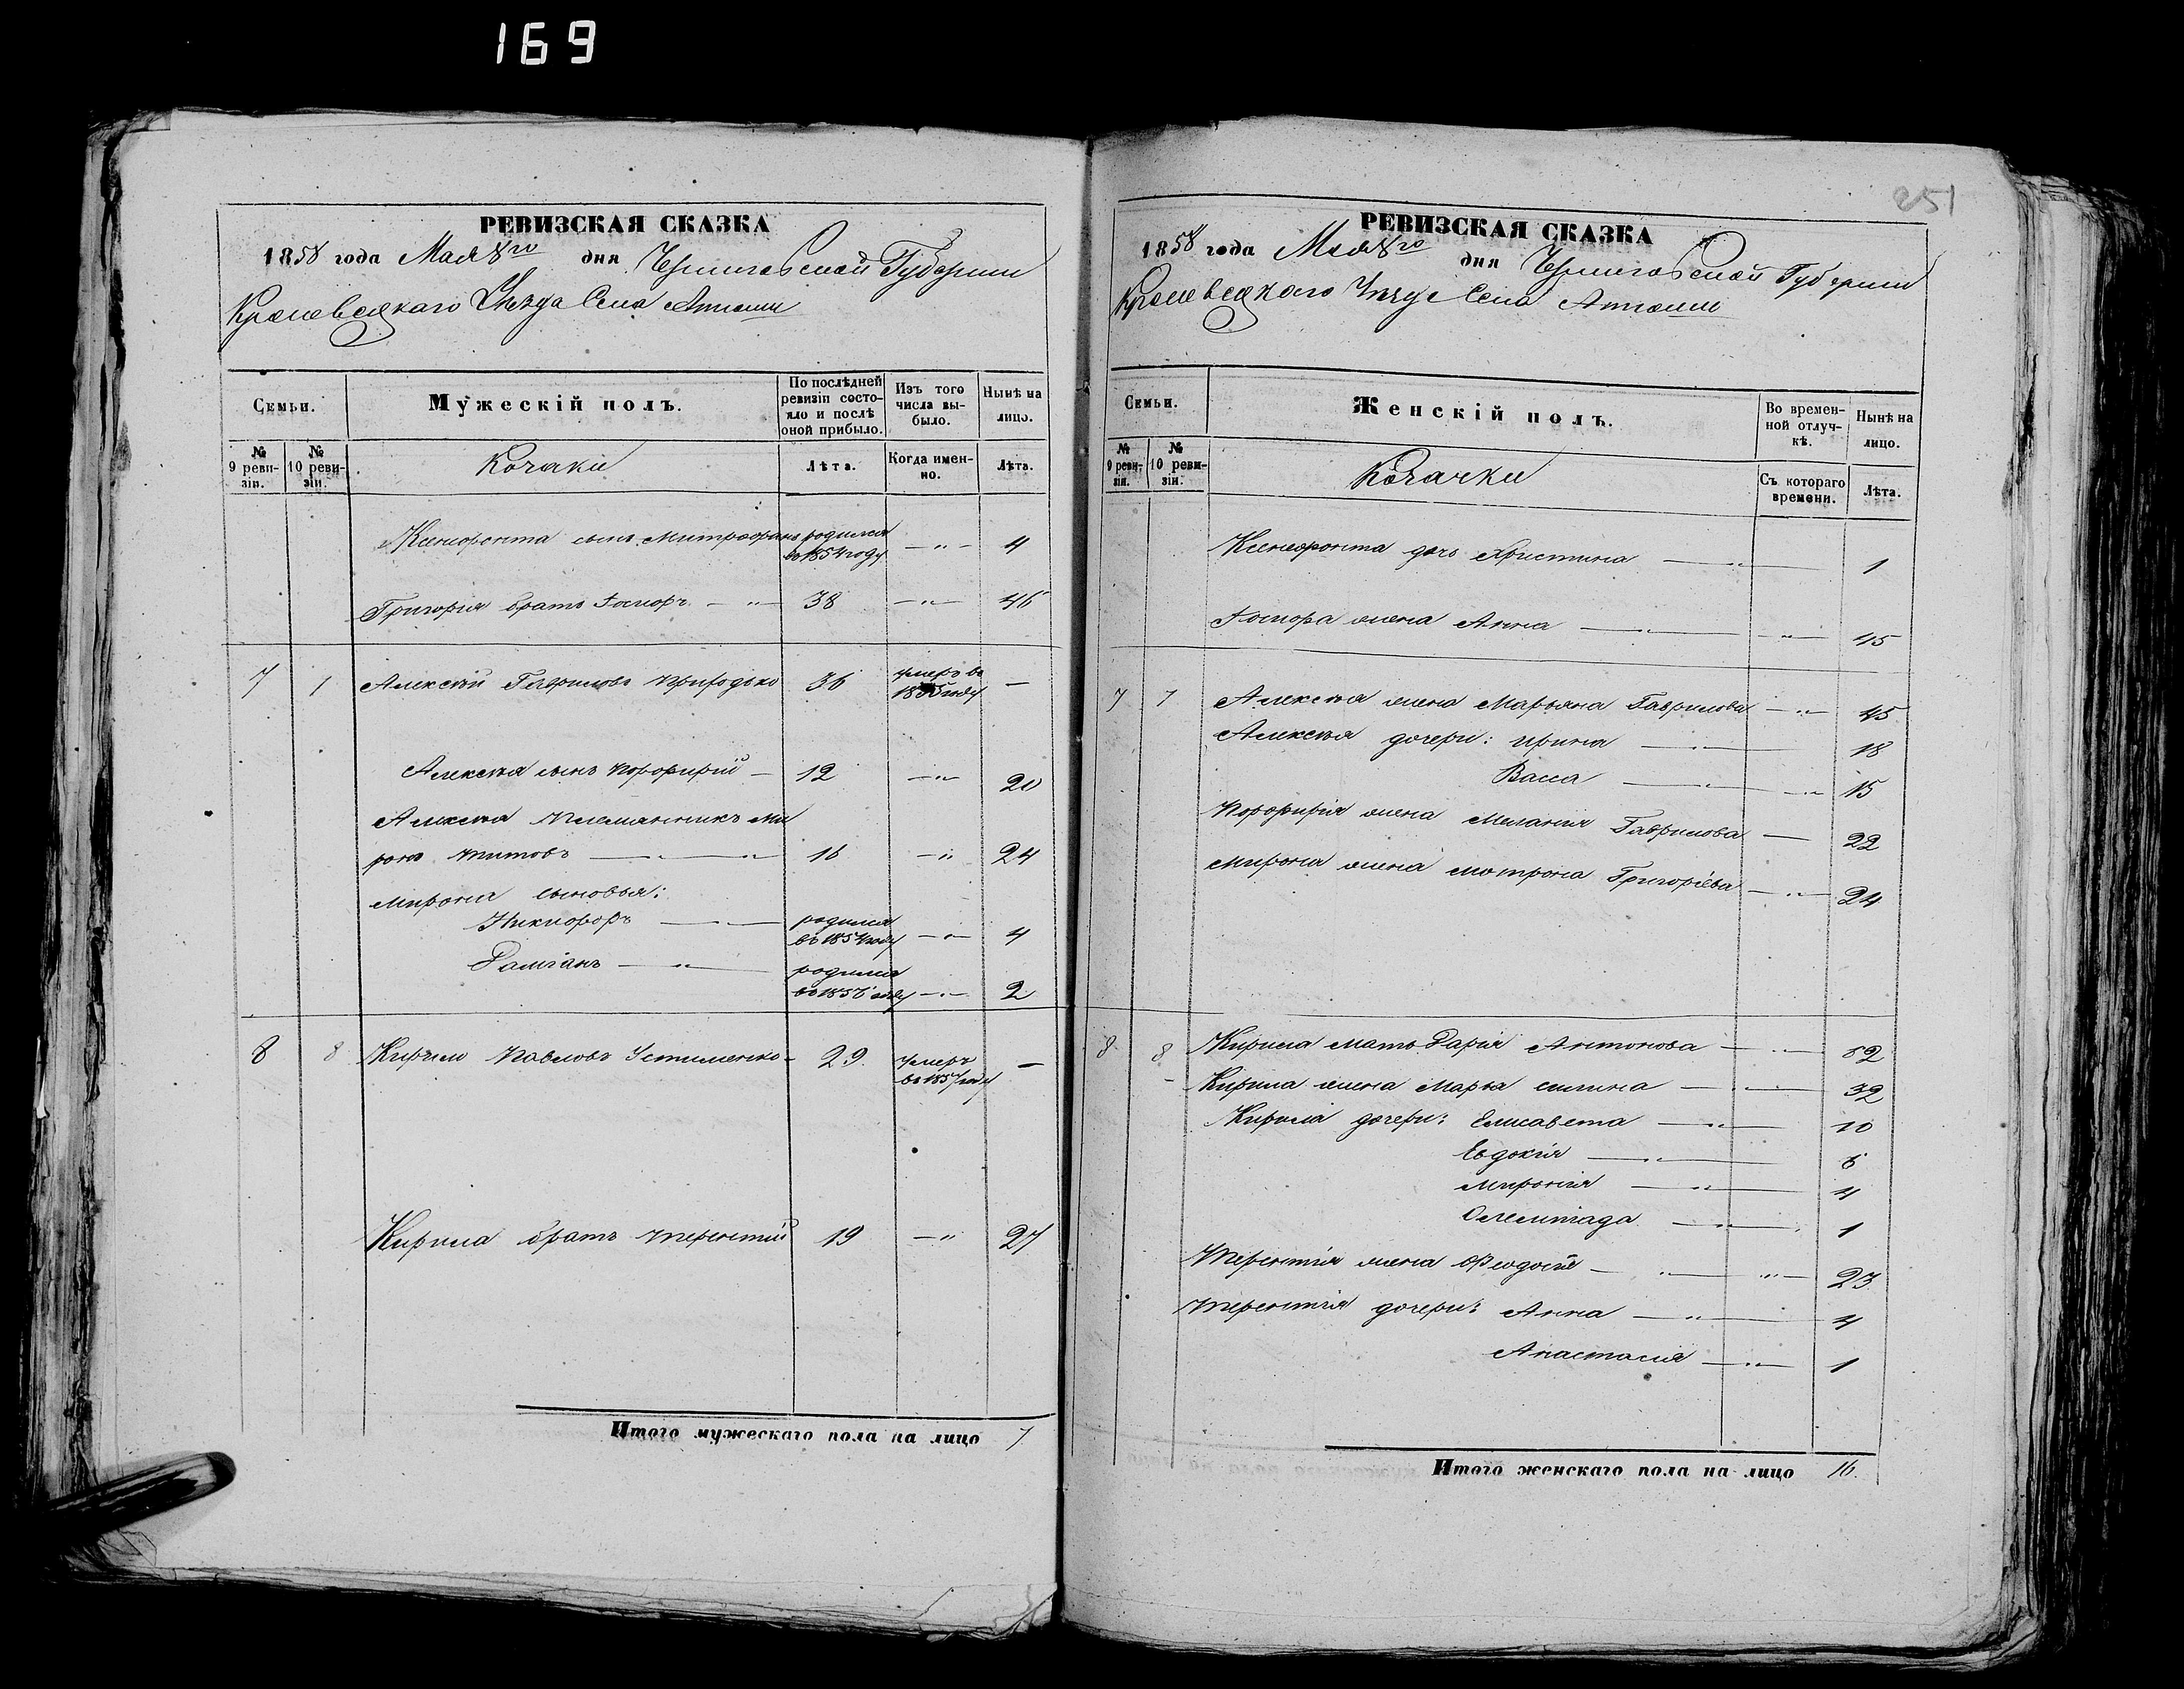 169
РЕВИЗСКАЯ СКАЗКА
1858 года Мая 8го дня Черниговской Губернии
Кролевецкаго Уезда Села
Семьи.
Мужескій полъ.
По послѣдней ревизіи состояло и послѣ оной прибыло.
Изъ того числа выбыло.
Нынѣ на лицо.
№ 9 ревизіи.
№ 10 ревизіи.
Козаки
Лѣта.
Когда именно.
Лѣта.
Ксенофонта сынъ Митрофанъ родился въ 1854 году — „ — 4
Григорія братъ — „ — 38 — „ — 46
7 Алексѣй Гавриловъ Природько 36 умеръ въ 1855 году —
Алексѣя сынъ Порфирий — 12 — „ — 20
Алексѣя племянникъ Ми
ронъ Титовъ — „ — 16 — „ — 24
Мирона сыновья:
Никифоръ — родился въ 1854 году — „ — 4
Даміанъ — „ — родился въ 1856 году — „ — 2
8 8 Кирило Павловъ Устименко — 29 умеръ въ 1857 году —
Кирила братъ Терентій 19 — „ 27
Итого мужескаго пола на лицо 7
251
РЕВИЗСКАЯ СКАЗКА
1858 года Мая 8го дня Черниговской Губернии
Кролевецкаго Уезда Села
Семьи.
Женскій полъ.
Во временной отлучкѣ.
Нынѣ на лицо.
№ 9 ревизіи.
№ 10 ревизіи.
Козачки
Съ котораго времени.
Лѣта.
Ксенофонта дочь Христина — „ — 1
жена Анна — „ — „ — 45
7 7 Алексѣя жена Марьяна Гаврилова — „ — 45
Алексѣя дочери: Ирина — „ — 18
Васса — „ — „ — 15
Порфирія жена Меланія Гаврилова — 22
Мирона жена Мотрона Григорієва — „ — 24
8 8 Кирила мать Дарія Антонова — „ — 62
Кирила жена Марья — „ — 32
Кирила дочери: Елисавета — „ — 10
Евдокія — „ — 6
Миронія — „ — 4
Олемпіада — „ — 1
Терентія жена Феодосія — „ — „ — 23
Терентія дочери: Анна — „ — 4
Анастасія — „ — 1
Итого женскаго пола на лицо 16.